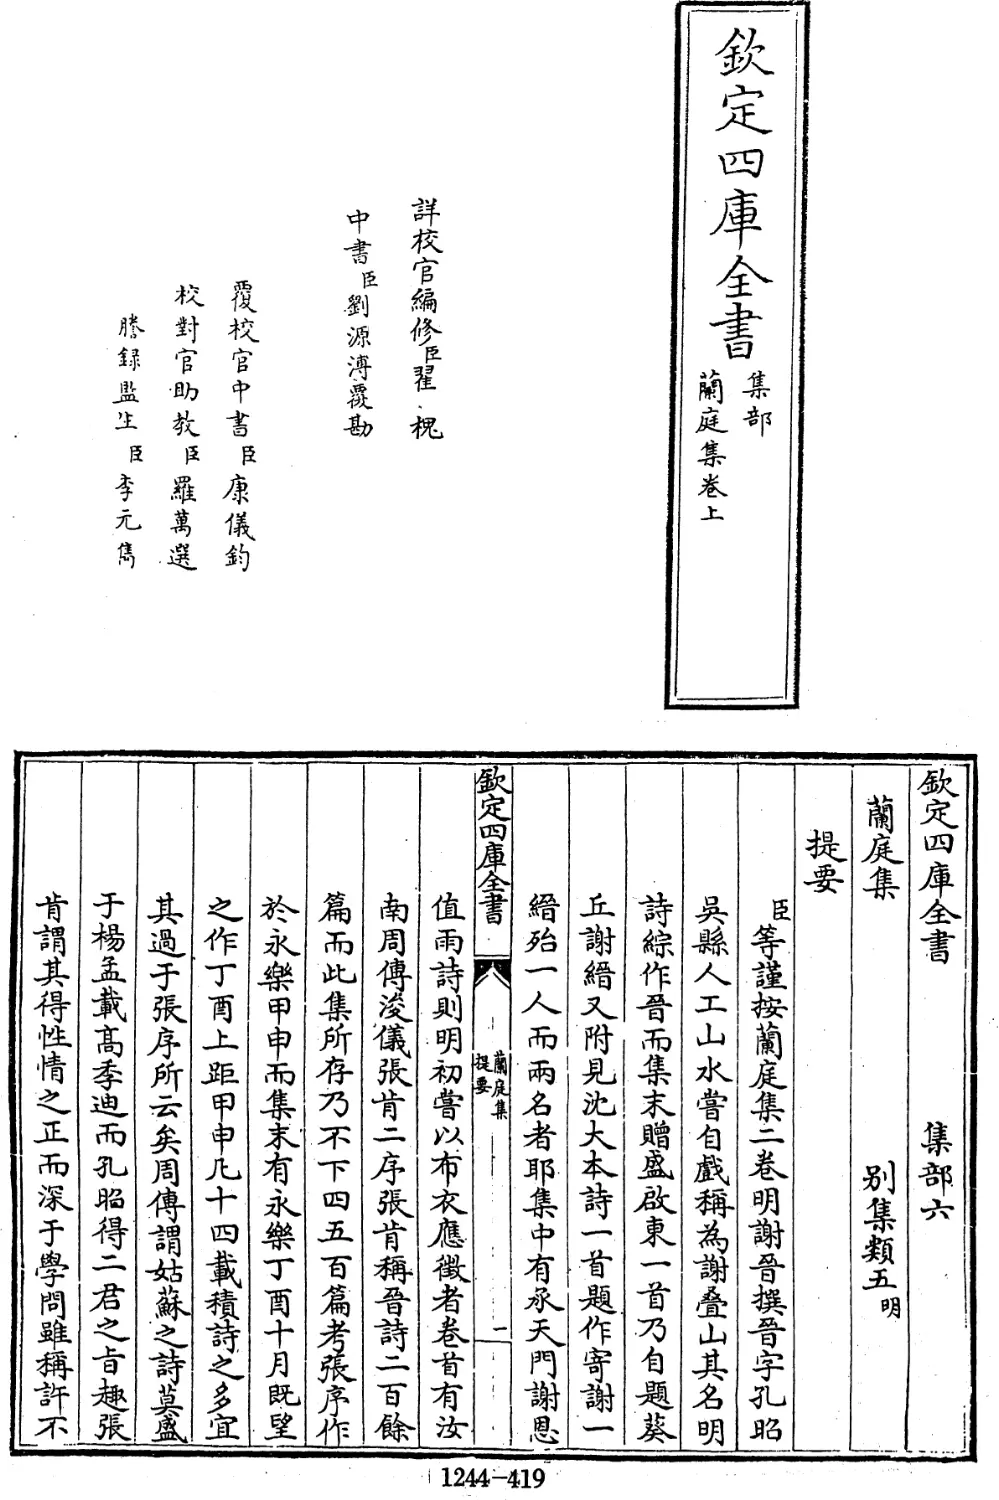 欽定四庫全書
集部
蘭庭集卷上
詳校官編修臣翟槐
中書臣劉源溥覆勘
覆校官中書臣康儀鈞
校對官助教臣羅萬選
謄録監生臣李元儁
欽定四庫全書 集部六
蘭庭集 别集類五明
提要
臣等謹按蘭庭集二卷明謝晉撰晉字孔昭
吳縣人工山水嘗自戲稱為謝疊山其名明
詩綜作晉而集末贈盛啟東一首乃自題葵
丘謝縉又附見沈大本詩一首題作寄謝一
縉殆一人而兩名者耶集中有承天門謝恩
欽定四庫全書
蘭庭集
提要
一
值雨詩則明初嘗以布衣應徵者卷首有汝
南周傳浚儀張肯二序張肯稱晉詩二百餘
篇而此集所存乃不下四五百篇考張序作
於永樂甲申而集末有永樂丁酉十月既望
之作丁酉上距甲申凡十四載積詩之多宜
其過于張序所云矣周傳謂姑蘇之詩莫盛
于楊孟載髙季迪而孔昭得二君之旨趣張
肯謂其得性情之正而深于學問雖稱許不
1244-419